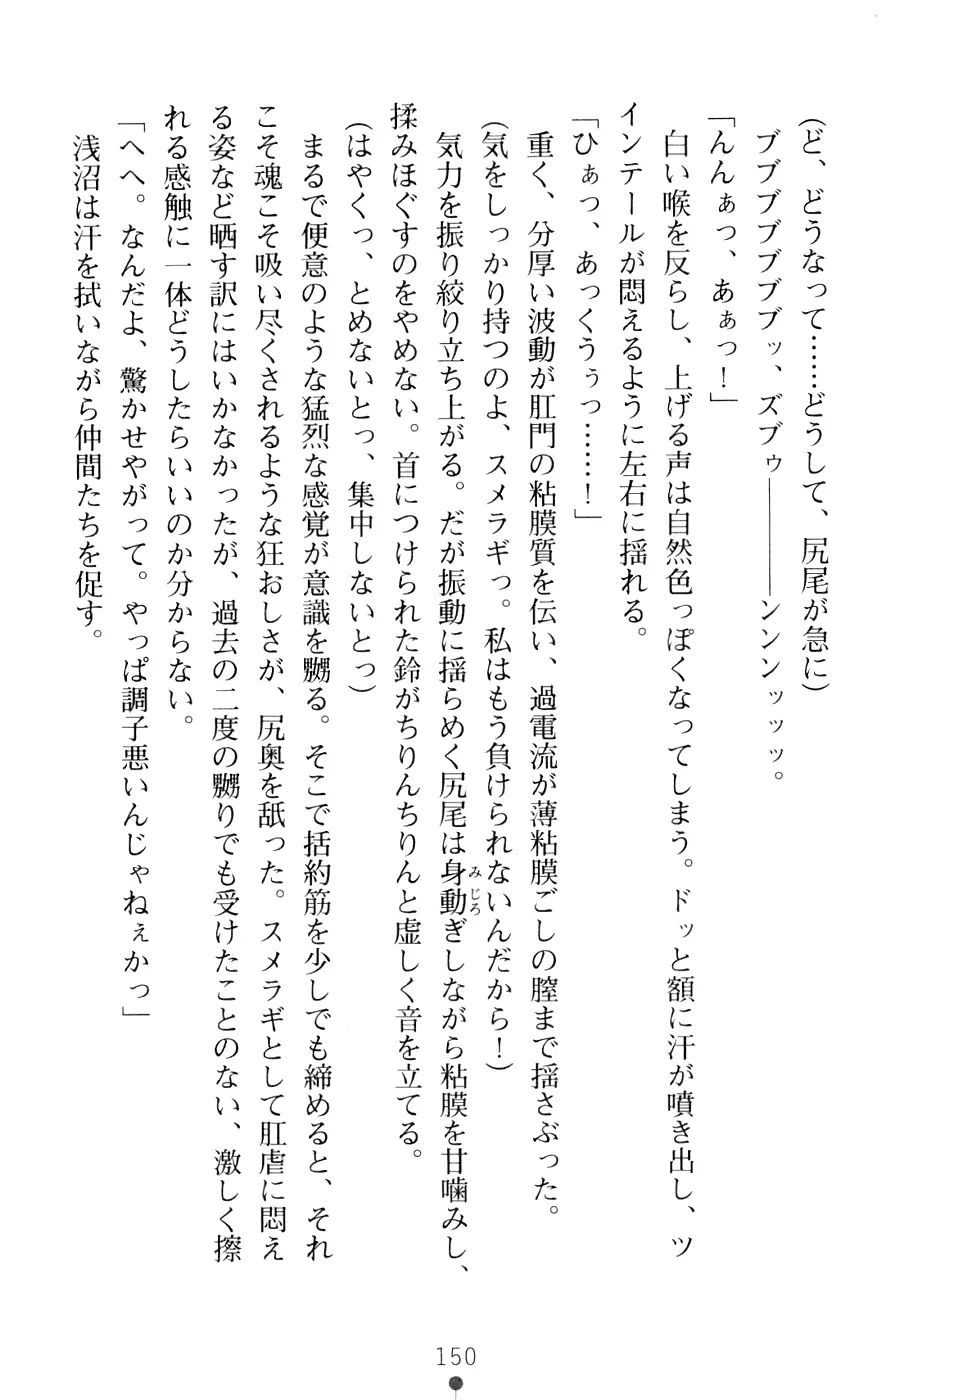 (ど、どうなって……どうして、尻尾が急に)
ブブブブブブッ、ズブゥ――――ンンンッッッ。
「んんぁっ、あぁっ！」
白い喉を反らし、上げる声は自然色っぽくなってしまう。ドッと額に汗が噴き出し、ツ
インテールが悶えるように左右に揺れる。
「ひぁっ、あっくうぅっ……！」
重く、分厚い波動が肛門の粘膜質を伝い、過電流が薄粘膜ごしの膣まで揺さぶった。
(気をしっかり持つのよ、スメラギっ。私はもう負けられないんだから！)
気力を振り絞り立ち上がる。だが振動に揺らめく尻尾は身動みじろぎしながら粘膜を甘噛みし、
揉みほぐすのをやめない。首につけられた鈴がちりんちりんと虚しく音を立てる。
(はやくっ、とめないとっ、集中しないとっ)
まるで便意のような猛烈な感覚が意識を嬲る。そこで括約筋を少しでも締めると、それ
こそ魂こそ吸い尽くされるような狂おしさが、尻奥を舐った。スメラギとして肛虐に悶え
る姿など晒す訳にはいかなかったが、過去の二度の嬲りでも受けたことのない、激しく擦
れる感触に一体どうしたらいいのか分からない。
「へへ。なんだよ、驚かせやがって。やっぱ調子悪いんじゃねぇかっ」
浅沼は汗を拭いながら仲間たちを促す。
150